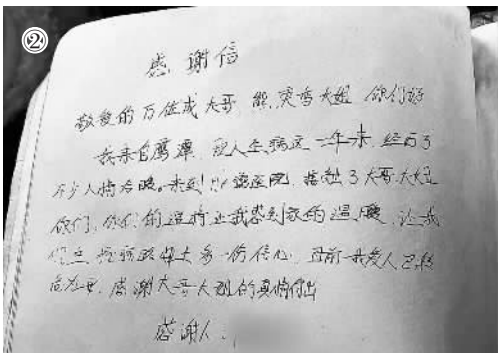 ②
感谢信
敬爱的万佐成大哥 熊庚香大姐 你们好
我来自鹰潭,我人生病这一年来,经历了
不少人情冷暖。来到 医院,接触了大哥大姐
你们,你们的 让我感到家的温暖,让我
多一份信心,目前我爱人已转
危为安,感谢大哥大姐的真情付出
感谢人: